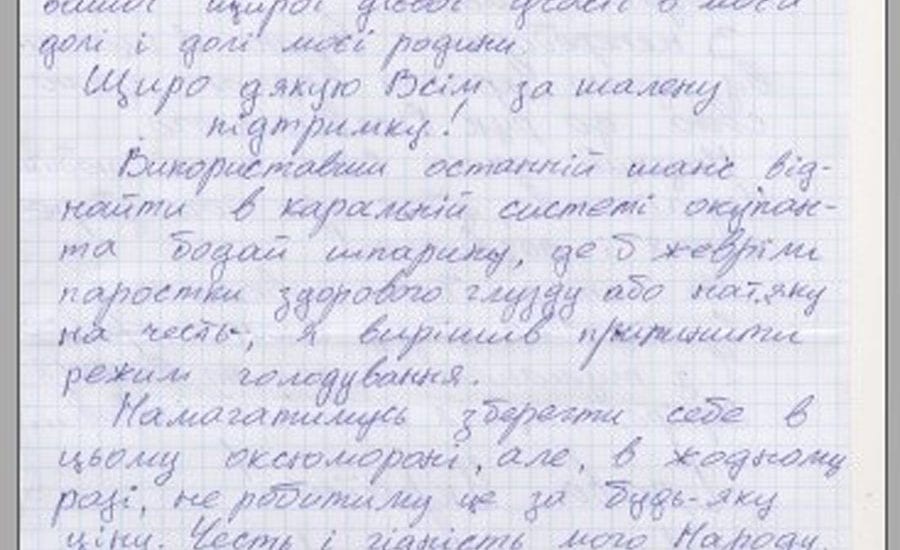 вашої щирої дієвої участі в моїй
долі і долі моєї родини
Щиро дякую Всім за шалену
підтримку!
Використавши останній шанс від-
найти в каральній системі окупан-
та бодай шпарину, де б жевріли
паростки здорового глузду або натяку
на честь, я вирішив припинити
режим голодування.
Намагатимусь зберегти себе в
цьому оксюмороні, але, в жодному
разі, не робитиму це за будь-яку
ціну. Честь і гідність мого Народу